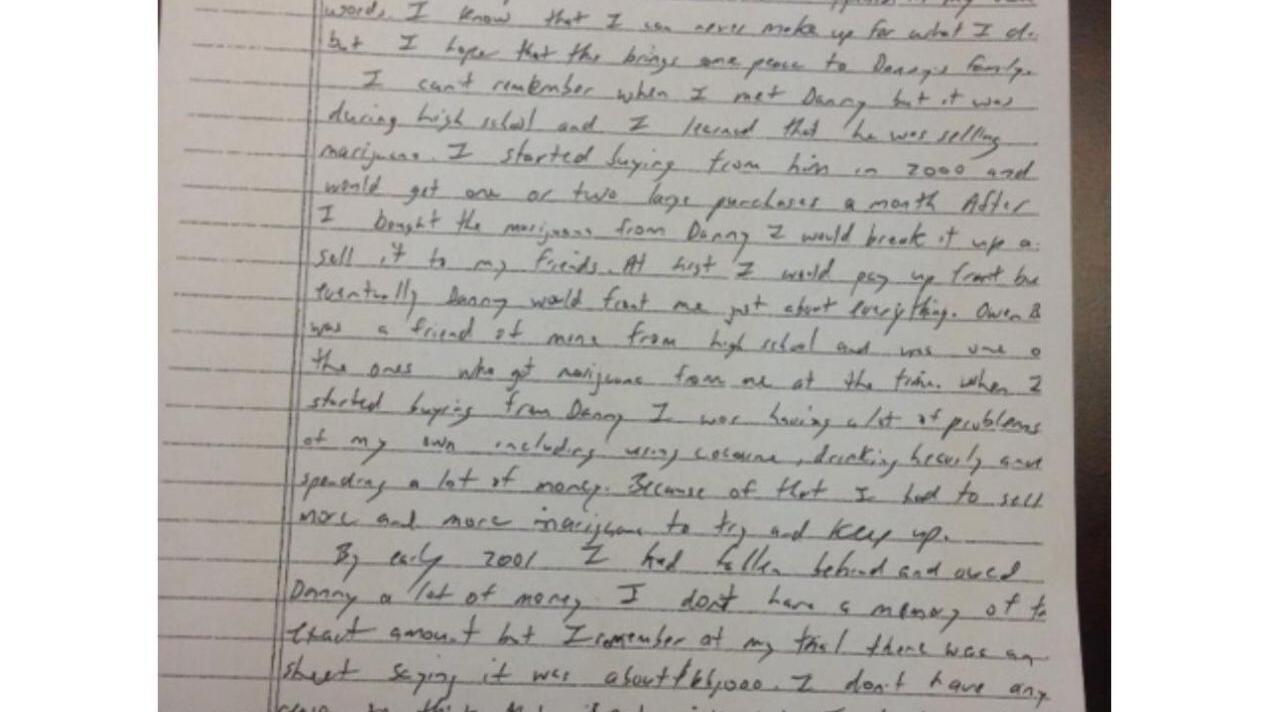 words. I know that I can never make up for what I di
but I hope that this brings some peace to Danny's family.
I can't remember when I met Danny but it was
during high school and I learned that he was selling
marijuana. I started buying from him in 2000 and
would get one or two large purchases a month After
I bought the marijuana from Danny I would break it up a
sell it to my friends. At first I would pay up front bu
eventually Danny would front me just about everything. Owen B
was a friend of mine from high school and was one o
the ones who got marijuana from me at the time. When I
started buying from Danny I was having a lot of problems
of my own including using cocaine, drinking heavily and
spending a lot of money. Because of that I had to sell
more and more marijuana to try and keep up.
By early 2001 I had fallen behind and owed
Danny a lot of money I don't have a memory of
exact amount but I remember at my trial there was an
sheet saying it was about $66,000. I don't have any